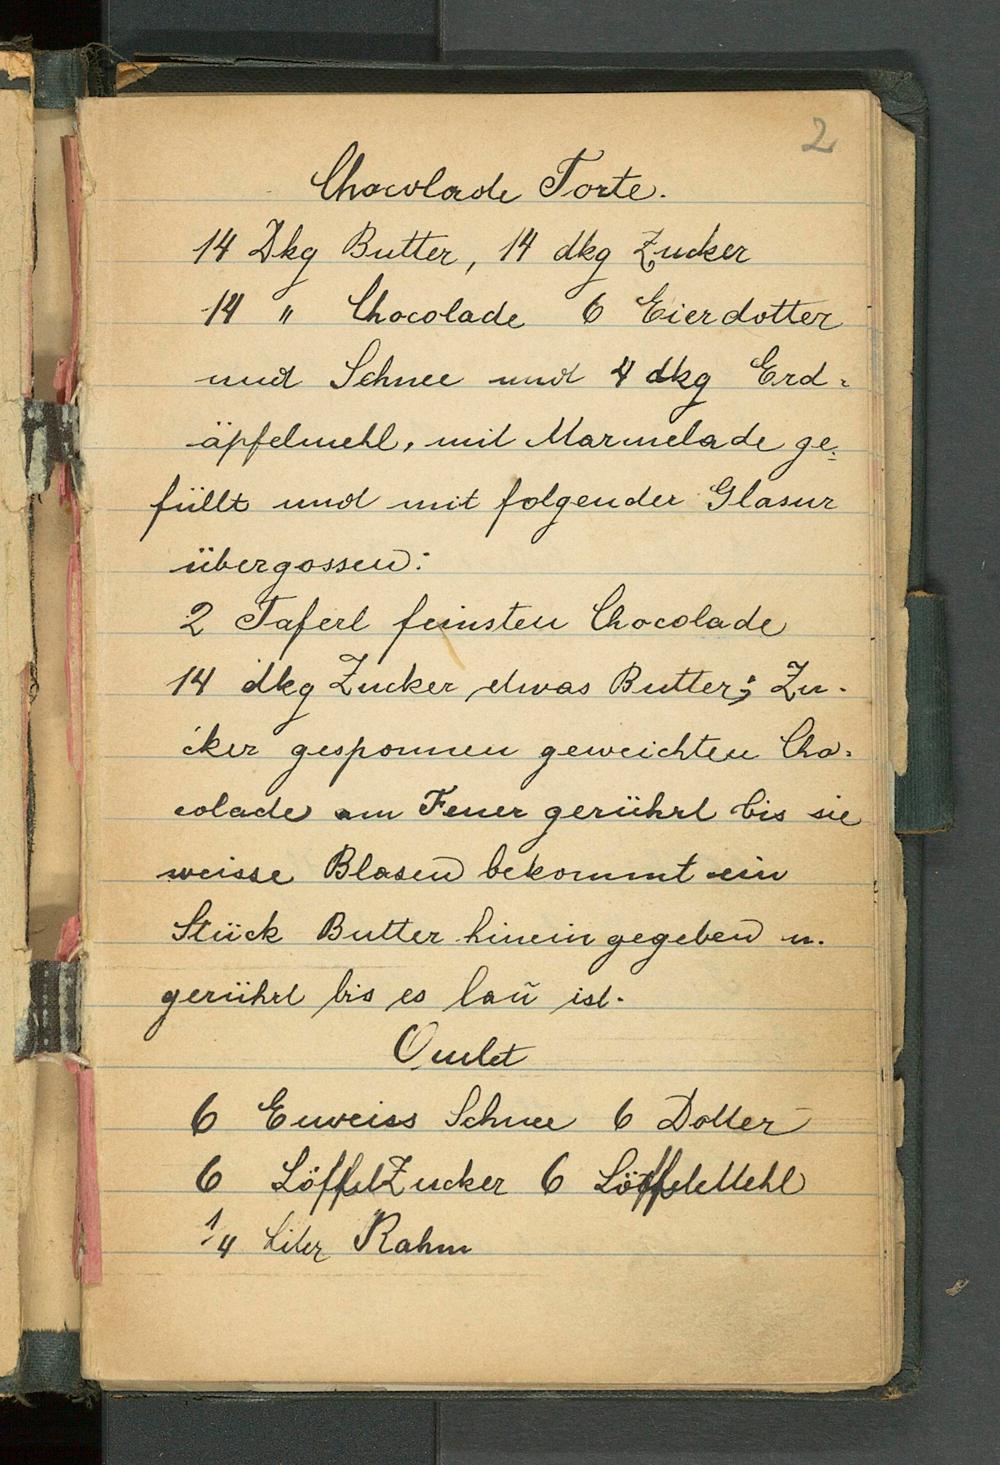 2
Chocolade Torte.
14 Dkg Butter, 14 dkg Zucker
14 " Chocolade 6 Eierdotter
und Schnee und 4 dkg Erd-
äpfelmehl, mit Marmelade ge-
füllt und mit folgender Glasur
übergossen:
2 Taferl feinsten Chocolade
14 dkg Zucker etwas Butter; Zu-
cker gesponnen geweichten Cho-
colade am Feuer gerührt bis sie
weisse Blasen bekommt ein
Stück Butter hinein gegeben u.
gerührt bis es lau ist.
Omlet
6 Euweiss Schnee 6 Dotter
6 Löffel Zucker 6 Löffel Mehl
1/4 Liter Rahm